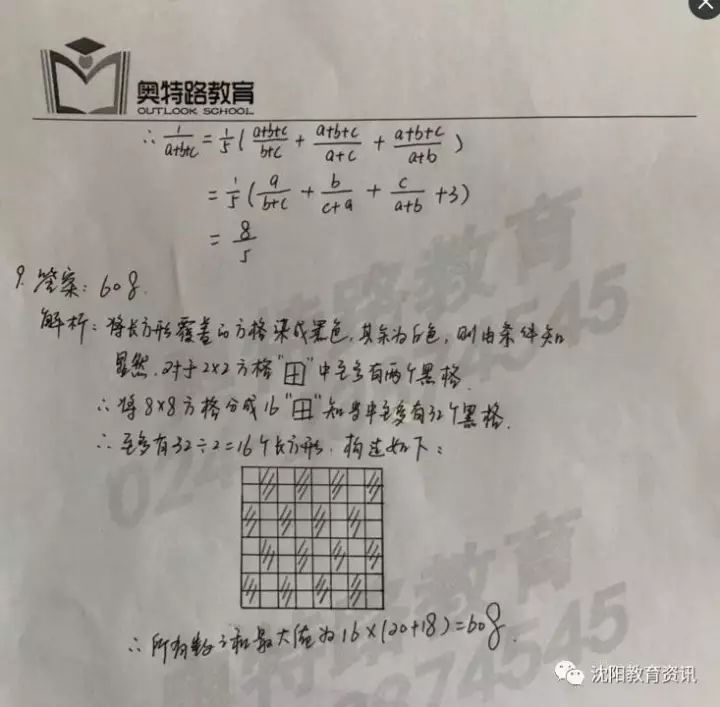 奥特路教育
OUTLOOK SCHOOL
∴ 1/(a+b+c) = 1/5 ( (a+b+c)/(b+c) + (a+b+c)/(a+c) + (a+b+c)/(a+b) )
= 1/5 ( a/(b+c) + b/(c+a) + c/(a+b) + 3 )
= 8/5
9. 答案: 608.
解析: 将长方形覆盖的方格染成黑色, 其余为白色, 则由条件知
显然, 对于2×2方格“田”中至多有两个黑格.
∴ 将8×8方格分成16“田”知当中至多有32个黑格.
∴ 至多有32÷2=16个长方形. 构造如下:
∴ 所有数之和最大值为16×(20+18)=608.
沈阳教育资讯